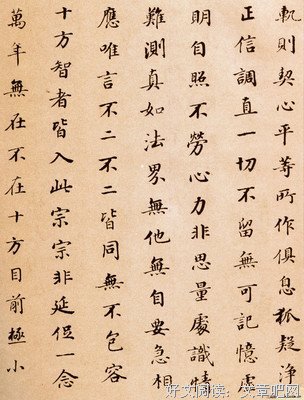 軌則契心平等所作俱息狐疑淨
正信調直一切不留無可記憶虛
明自照不勞心力非思量處識情
難測真如法界無他無自要急相
應唯言不二不二皆同無不包容
十方智者皆入此宗宗非延促一念
萬年無在不在十方目前極小
好文阅读：文章吧